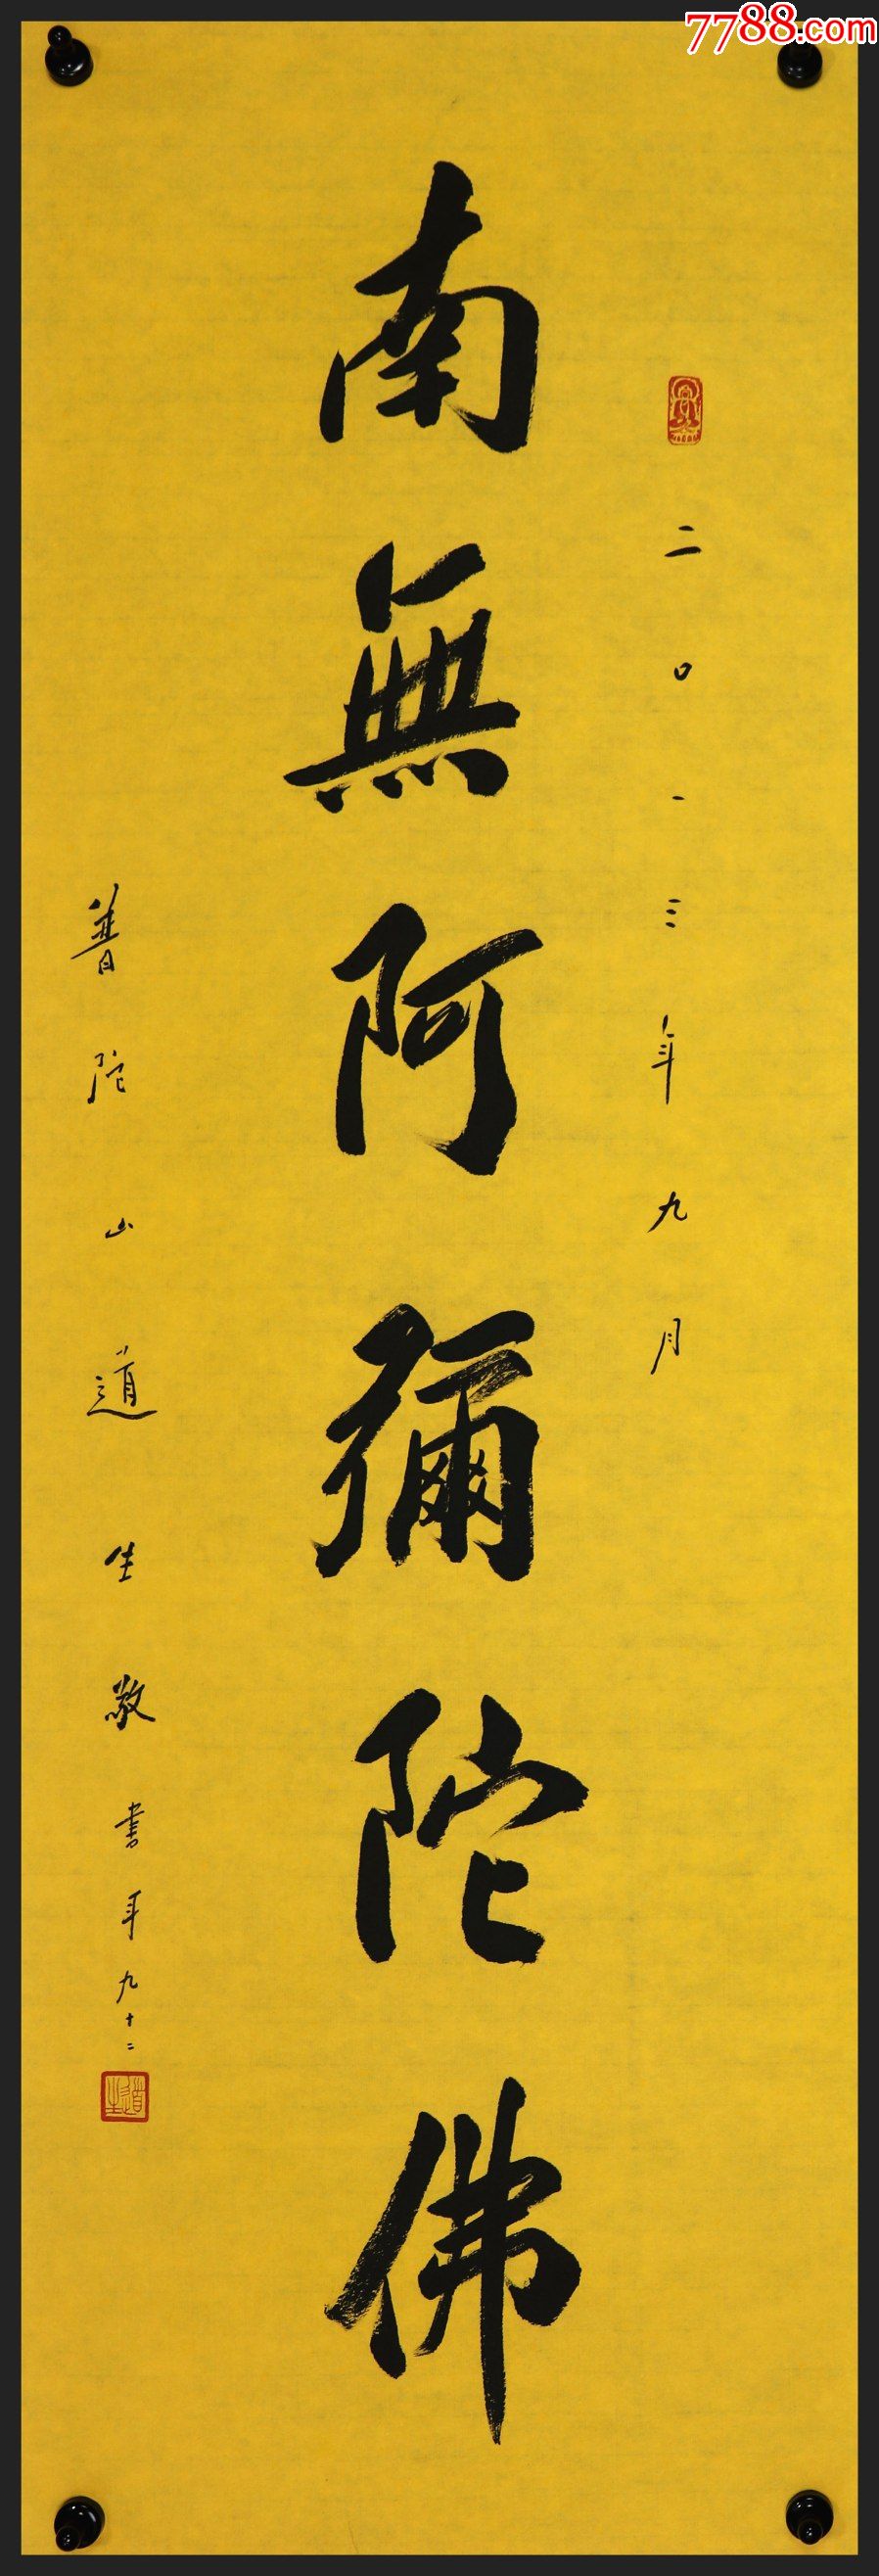 7788.com
二〇一三年九月
南無阿彌陀佛
普陀山道生敬書年九十二
道生